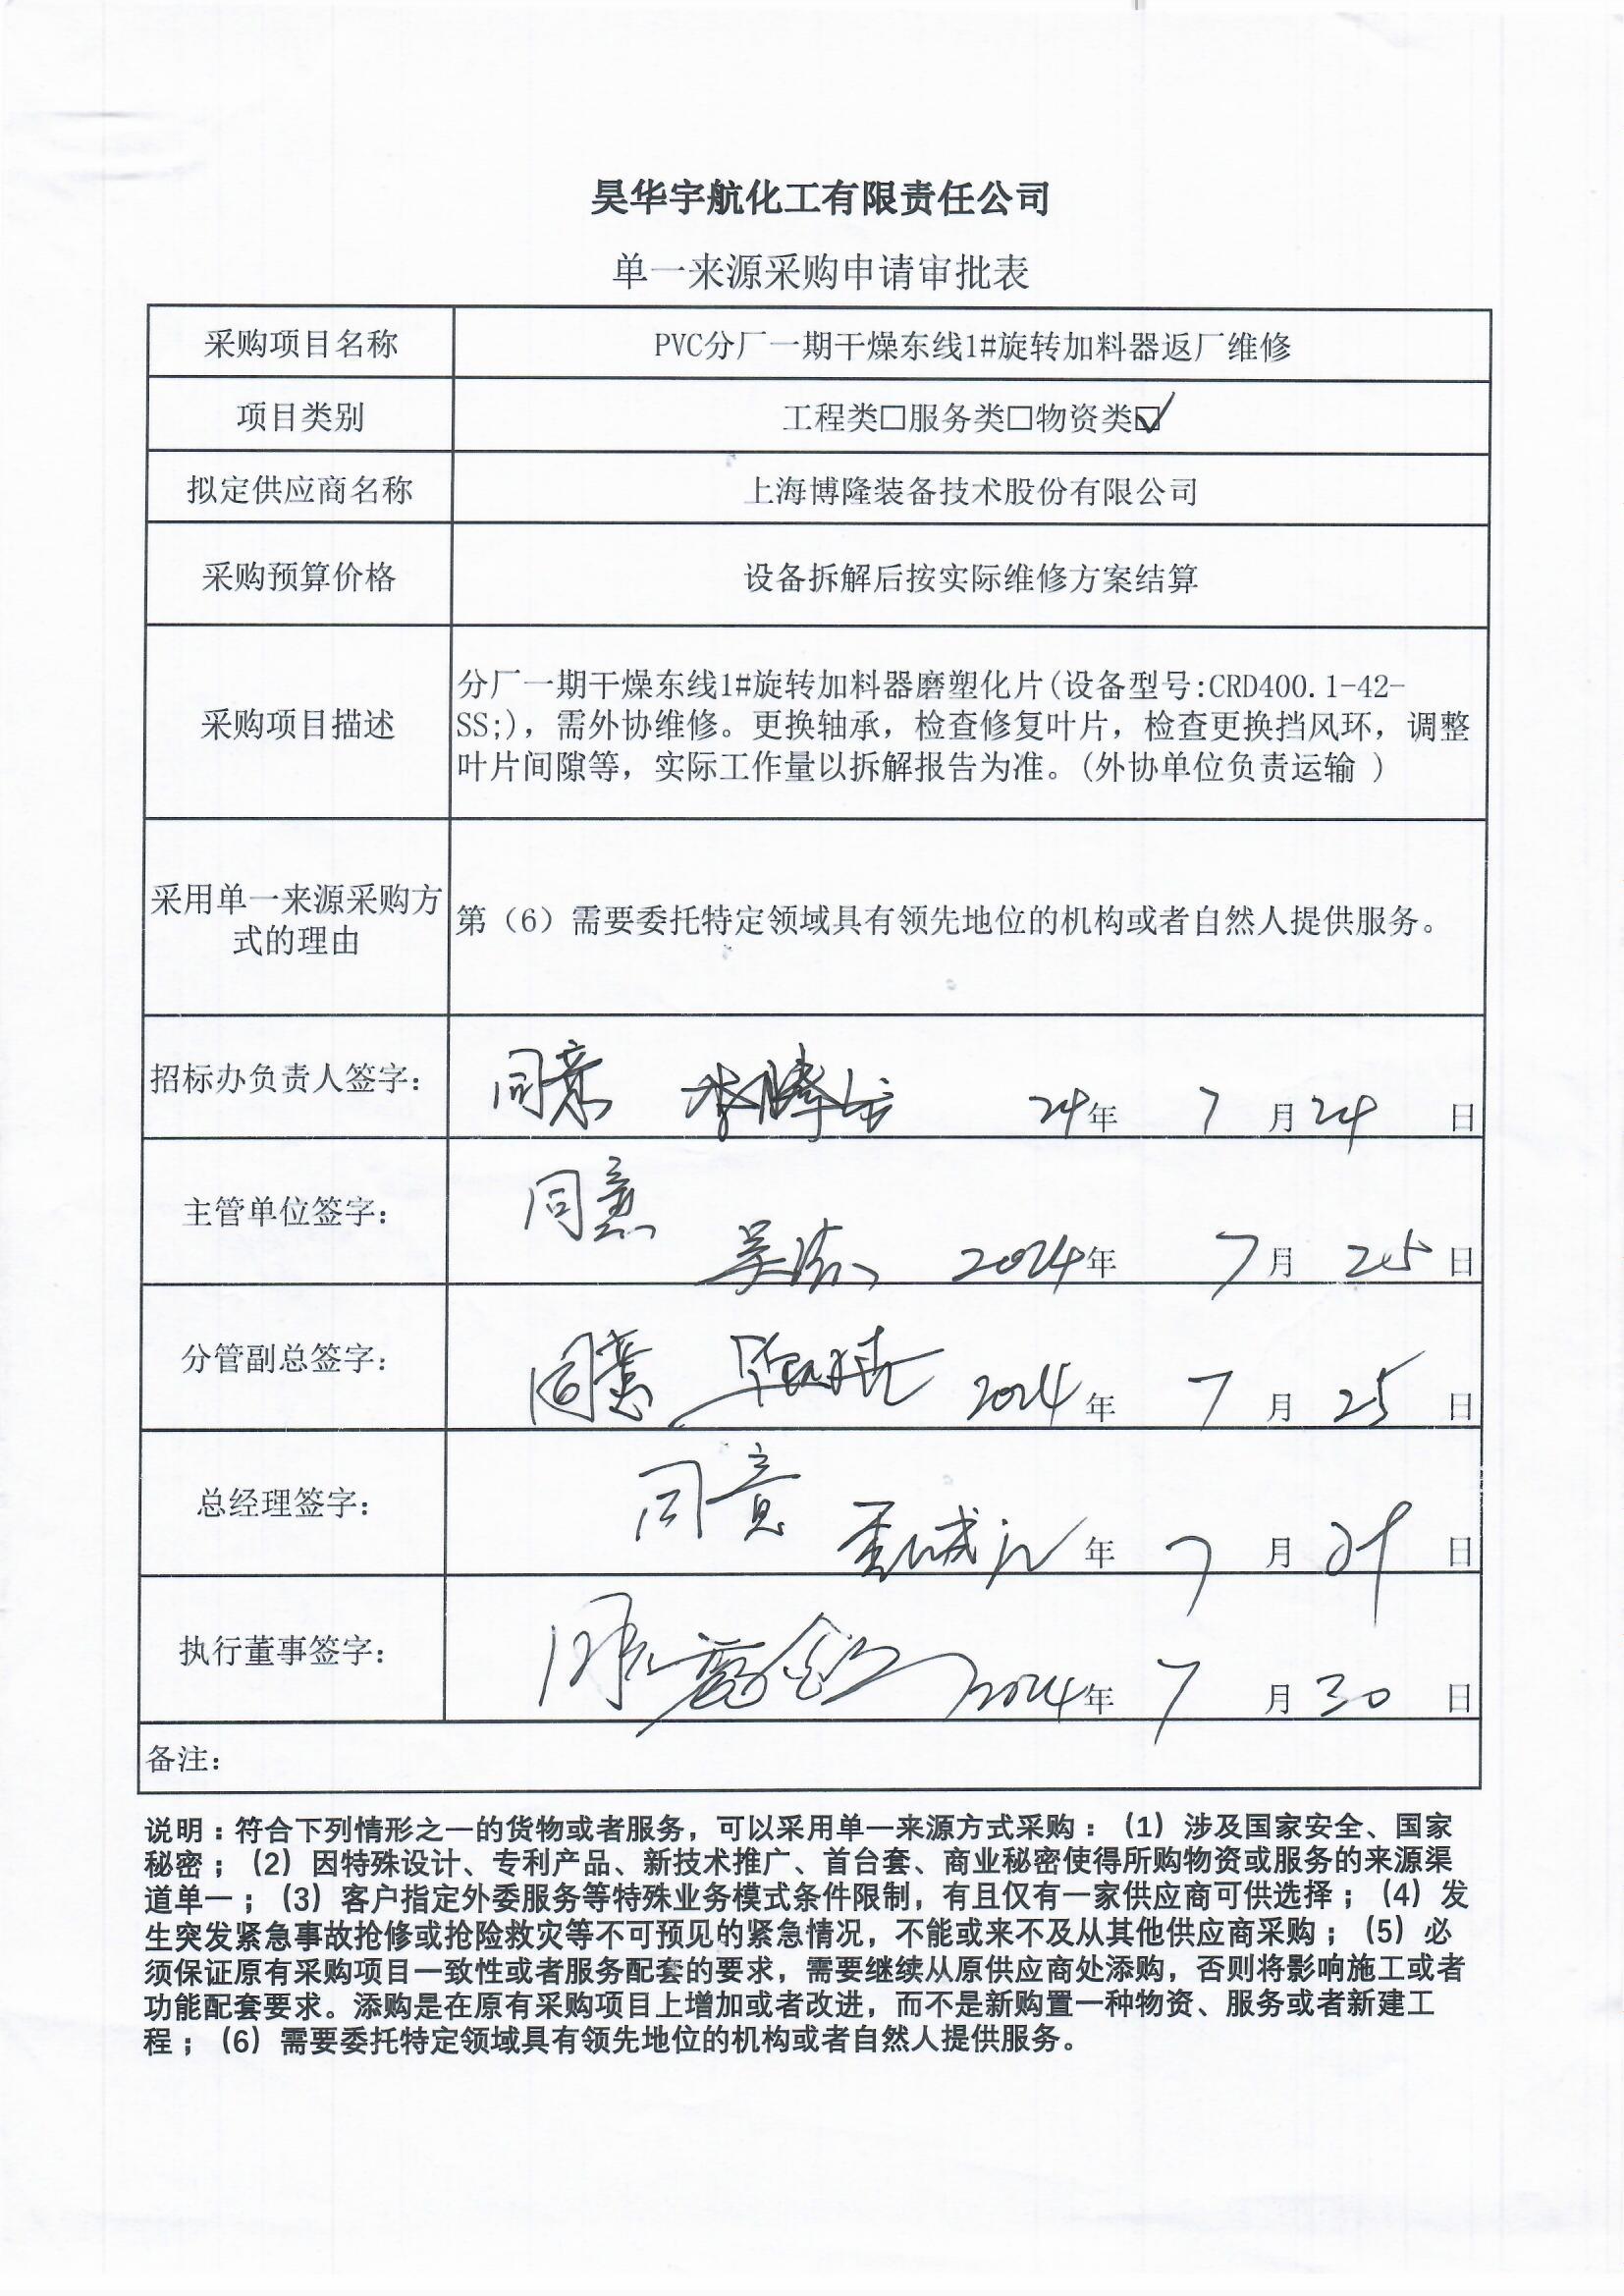 昊华宇航化工有限责任公司
单一来源采购申请审批表
采购项目名称 PVC分厂一期干燥东线1#旋转加料器返厂维修
项目类别 工程类□服务类□物资类☑
拟定供应商名称 上海博隆装备技术股份有限公司
采购预算价格 设备拆解后按实际维修方案结算
采购项目描述
分厂一期干燥东线1#旋转加料器磨塑化片(设备型号:CRD400.1-42-
SS;)，需外协维修。更换轴承，检查修复叶片，检查更换挡风环，调整
叶片间隙等，实际工作量以拆解报告为准。(外协单位负责运输 )
采用单一来源采购方
式的理由
第（6）需要委托特定领域具有领先地位的机构或者自然人提供服务。
招标办负责人签字： 同意 24年 7 月 24 日
主管单位签字： 同意 2024年 7 月 25 日
分管副总签字： 同意 2024 年 7 月 25 日
总经理签字： 同意 年 7 月 29 日
执行董事签字： 同意 2024年 7 月 30 日
备注：
说明：符合下列情形之一的货物或者服务，可以采用单一来源方式采购：（1）涉及国家安全、国家
秘密；（2）因特殊设计、专利产品、新技术推广、首台套、商业秘密使得所购物资或服务的来源渠
道单一；（3）客户指定外委服务等特殊业务模式条件限制，有且仅有一家供应商可供选择；（4）发
生突发紧急事故抢修或抢险救灾等不可预见的紧急情况，不能或来不及从其他供应商采购；（5）必
须保证原有采购项目一致性或者服务配套的要求，需要继续从原供应商处添购，否则将影响施工或者
功能配套要求。添购是在原有采购项目上增加或者改进，而不是新购置一种物资、服务或者新建工
程；（6）需要委托特定领域具有领先地位的机构或者自然人提供服务。